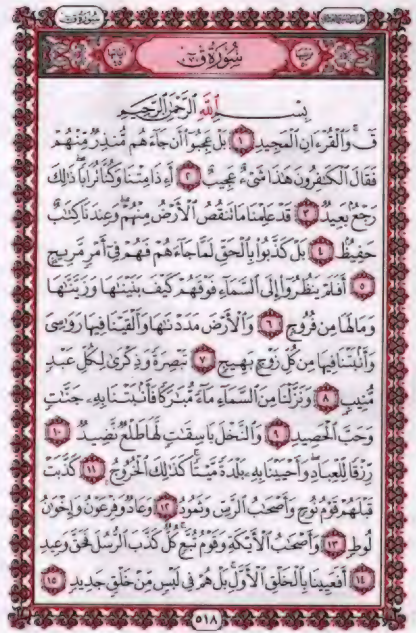 سُورَةُ قٓ
سُورَةُ قٓ
بِسْمِ ٱللَّهِ ٱلرَّحْمَٰنِ ٱلرَّحِيمِ
قٓ ۚ وَٱلْقُرْءَانِ ٱلْمَجِيدِ ١ بَلْ عَجِبُوٓا۟ أَن جَآءَهُم مُّنذِرٌ مِّنْهُمْ
فَقَالَ ٱلْكَٰفِرُونَ هَٰذَا شَىْءٌ عَجِيبٌ ٢ أَءِذَا مِتْنَا وَكُنَّا تُرَابًا ۖ ذَٰلِكَ
رَجْعٌۢ بَعِيدٌ ٣ قَدْ عَلِمْنَا مَا تَنقُصُ ٱلْأَرْضُ مِنْهُمْ ۖ وَعِندَنَا كِتَٰبٌ
حَفِيظٌۢ ٤ بَلْ كَذَّبُوا۟ بِٱلْحَقِّ لَمَّا جَآءَهُمْ فَهُمْ فِىٓ أَمْرٍ مَّرِيجٍ
٥ أَفَلَمْ يَنظُرُوٓا۟ إِلَى ٱلسَّمَآءِ فَوْقَهُمْ كَيْفَ بَنَيْنَٰهَا وَزَيَّنَّٰهَا
وَمَا لَهَا مِن فُرُوجٍ ٦ وَٱلْأَرْضَ مَدَدْنَٰهَا وَأَلْقَيْنَا فِيهَا رَوَٰسِىَ
وَأَنۢبَتْنَا فِيهَا مِن كُلِّ زَوْجٍۭ بَهِيجٍ ٧ تَبْصِرَةً وَذِكْرَىٰ لِكُلِّ عَبْدٍ
مُّنِيبٍ ٨ وَنَزَّلْنَا مِنَ ٱلسَّمَآءِ مَآءً مُّبَٰرَكًا فَأَنۢبَتْنَا بِهِۦ جَنَّٰتٍ
وَحَبَّ ٱلْحَصِيدِ ٩ وَٱلنَّخْلَ بَاسِقَٰتٍ لَّهَا طَلْعٌ نَّضِيدٌ ١٠
رِّزْقًا لِّلْعِبَادِ ۖ وَأَحْيَيْنَا بِهِۦ بَلْدَةً مَّيْتًا ۚ كَذَٰلِكَ ٱلْخُرُوجُ ١١ كَذَّبَتْ
قَبْلَهُمْ قَوْمُ نُوحٍ وَأَصْحَٰبُ ٱلرَّسِّ وَثَمُودُ ١٢ وَعَادٌ وَفِرْعَوْنُ وَإِخْوَٰنُ
لُوطٍ ١٣ وَأَصْحَٰبُ ٱلْأَيْكَةِ وَقَوْمُ تُبَّعٍ ۚ كُلٌّ كَذَّبَ ٱلرُّسُلَ فَحَقَّ وَعِيدِ
١٤ أَفَعَيِينَا بِٱلْخَلْقِ ٱلْأَوَّلِ ۚ بَلْ هُمْ فِى لَبْسٍ مِّنْ خَلْقٍ جَدِيدٍ ١٥
٥١٨